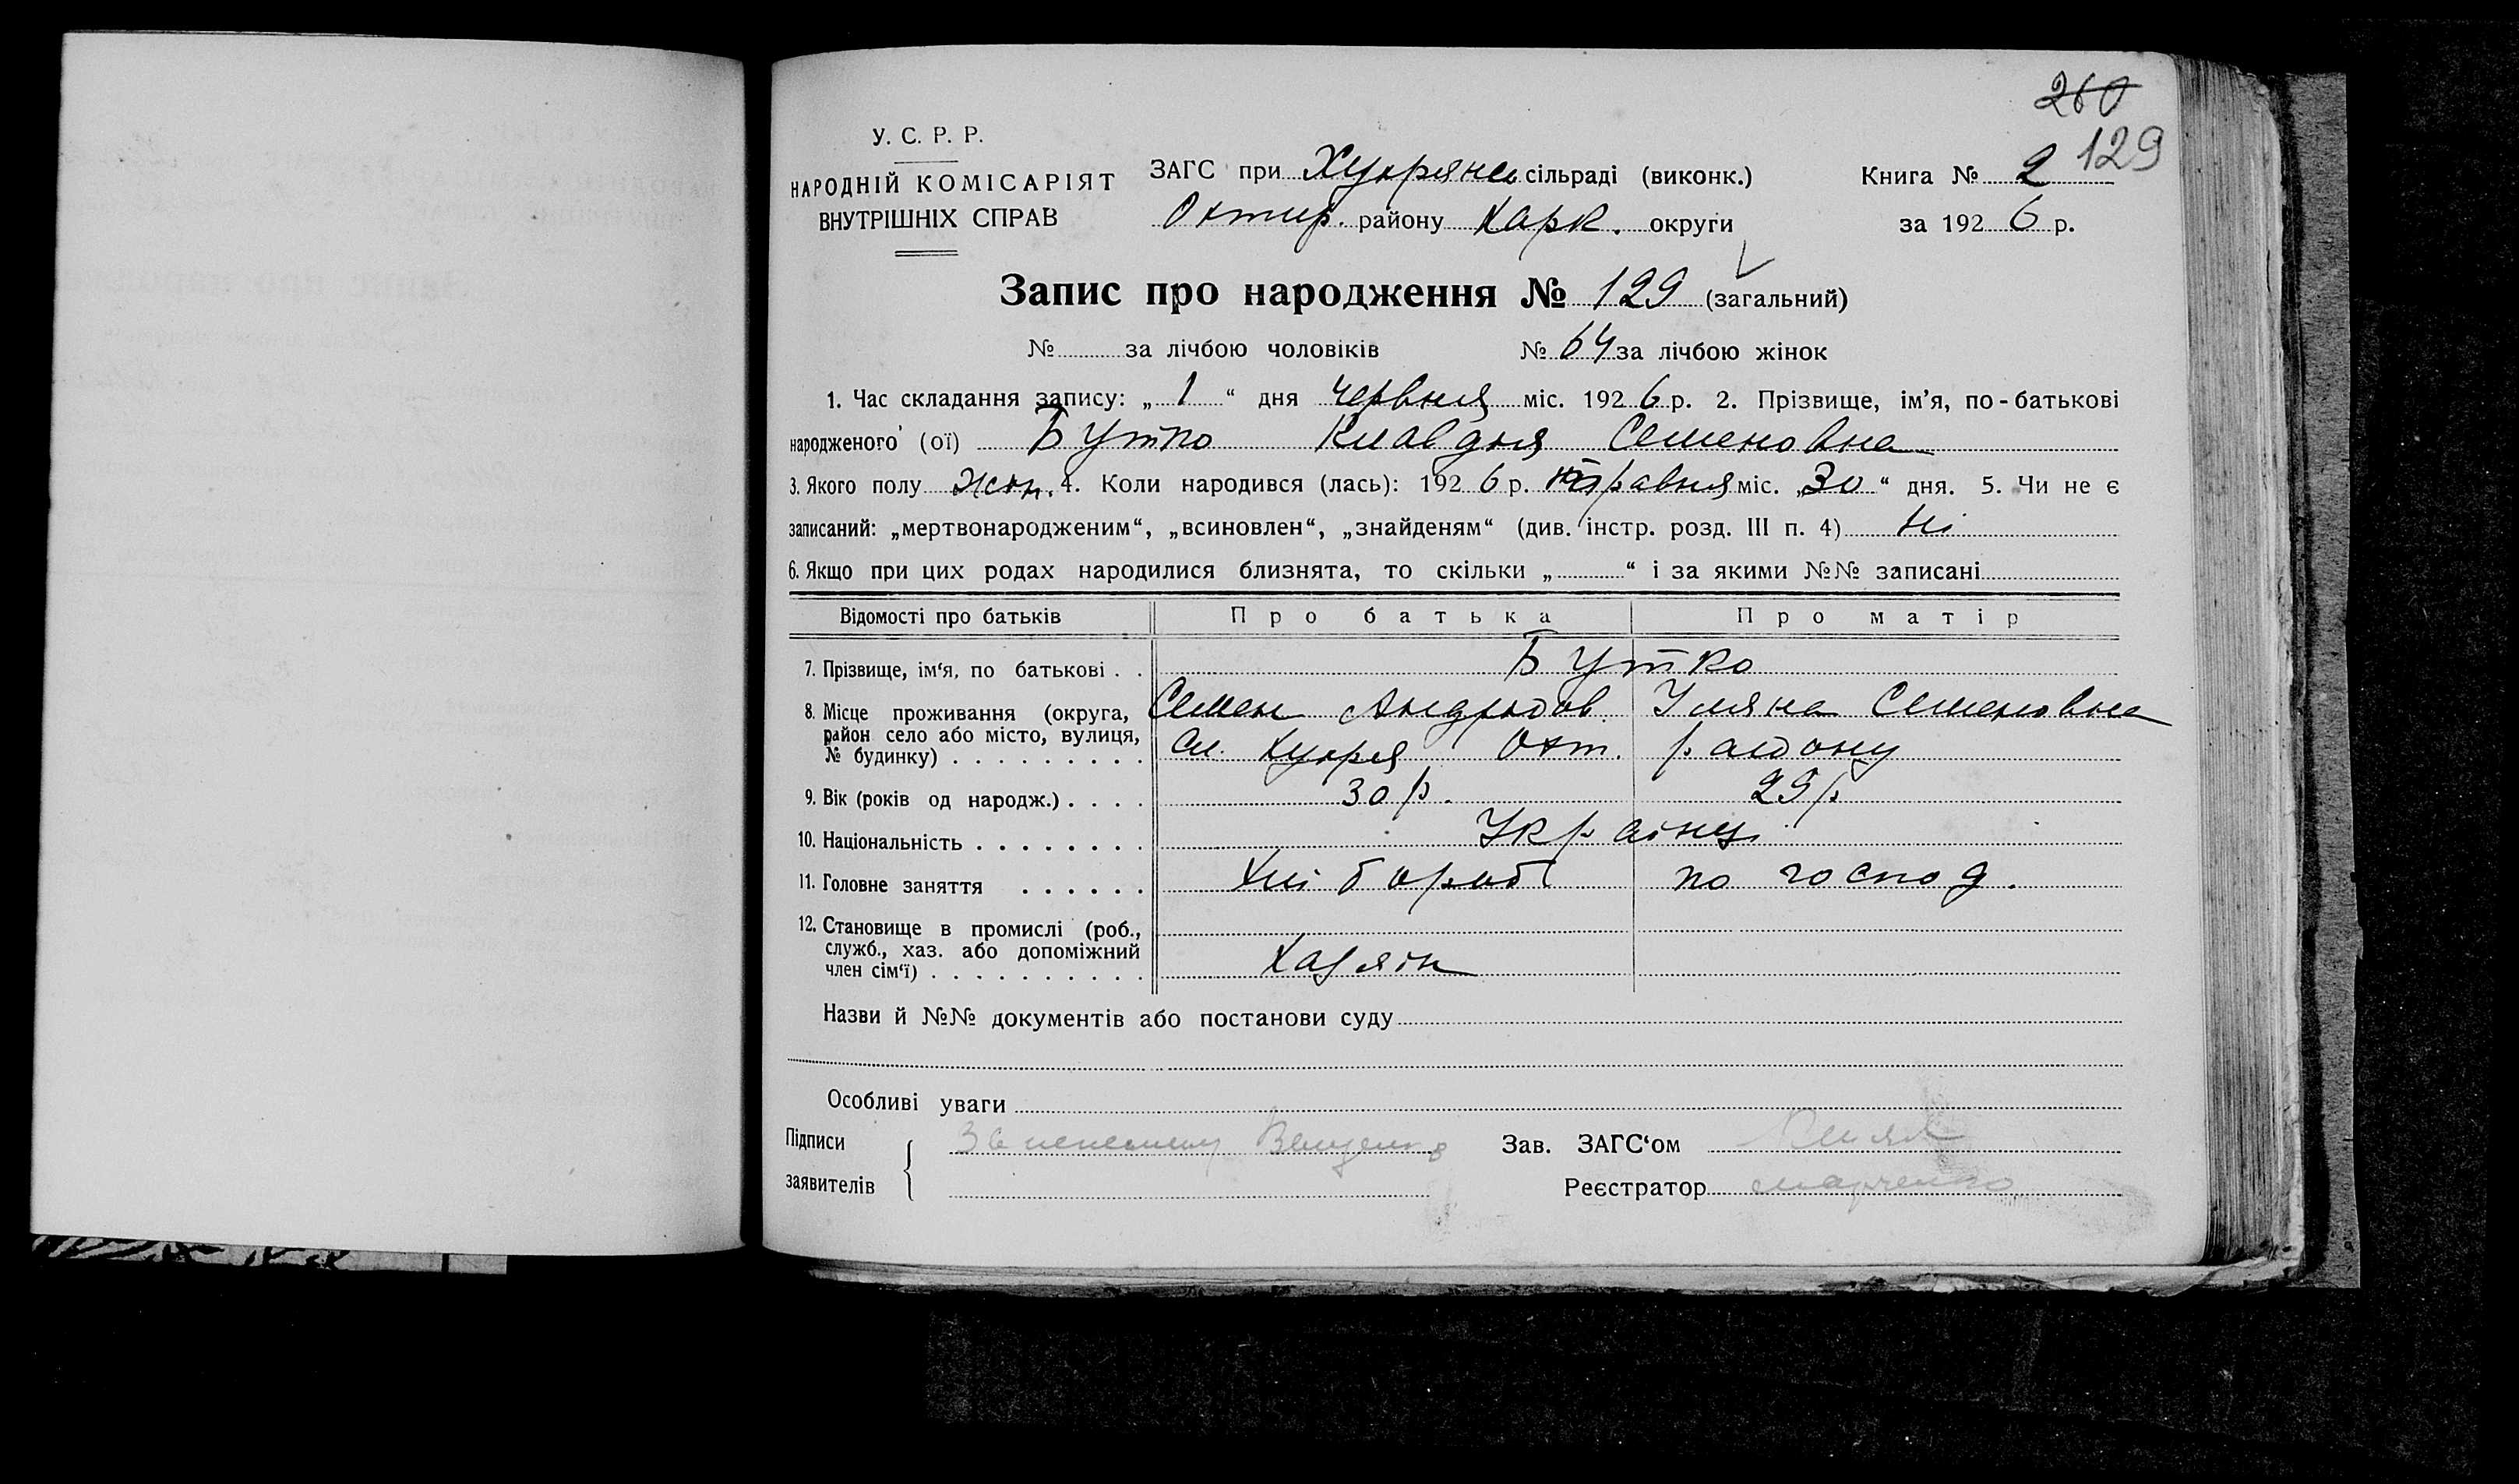 260
129
У. С. Р. Р.
НАРОДНІЙ КОМІСАРІЯТ
ВНУТРІШНІХ СПРАВ
ЗАГС при Хухрянск. сільраді (виконк.)
Охтир. району Харк. округи
Книга № 2
за 1926 р.
Запис про народження № 129 (загальний)
№ за лічбою чоловіків № 64 за лічбою жінок
1. Час складання запису: „ 1 “ дня червня міс. 1926 р. 2. Прізвище, ім’я, по-батькові
народженого (ої) Бутко Клавдия Семеновна
3. Якого полу жін. 4. Коли народився (лась): 1926 р. травня міс. „30“ дня. 5. Чи не є
записаний: „мертвонародженим“, „всиновлен“, „знайденям“ (див. інстр. розд. III п. 4) Ні
6. Якщо при цих родах народилися близнята, то скільки „ “ і за якими №№ записані
Відомості про батьків Про батька Про матір
7. Прізвище, ім‘я, по батькові . . Бутко
Семен Андрієв. Уляна Семеновна
8. Місце проживання (округа,
район село або місто, вулиця,
№ будинку) . . . . . . . . . Сл. Хухря Охт. району
9. Вік (років од народж.) . . . . 30 р. 29 р.
10. Національність . . . . . . . . Українці
11. Головне заняття . . . . . . Хлібороб по господ.
12. Становище в промислі (роб.,
служб., хаз. або допоміжний
член сім‘ї) . . . . . . . . . . Хазяін
Назви й №№ документів або постанови суду
Особливі уваги
Підписи
заявителів
Зав. ЗАГС‘ом
Реєстратор Марченко